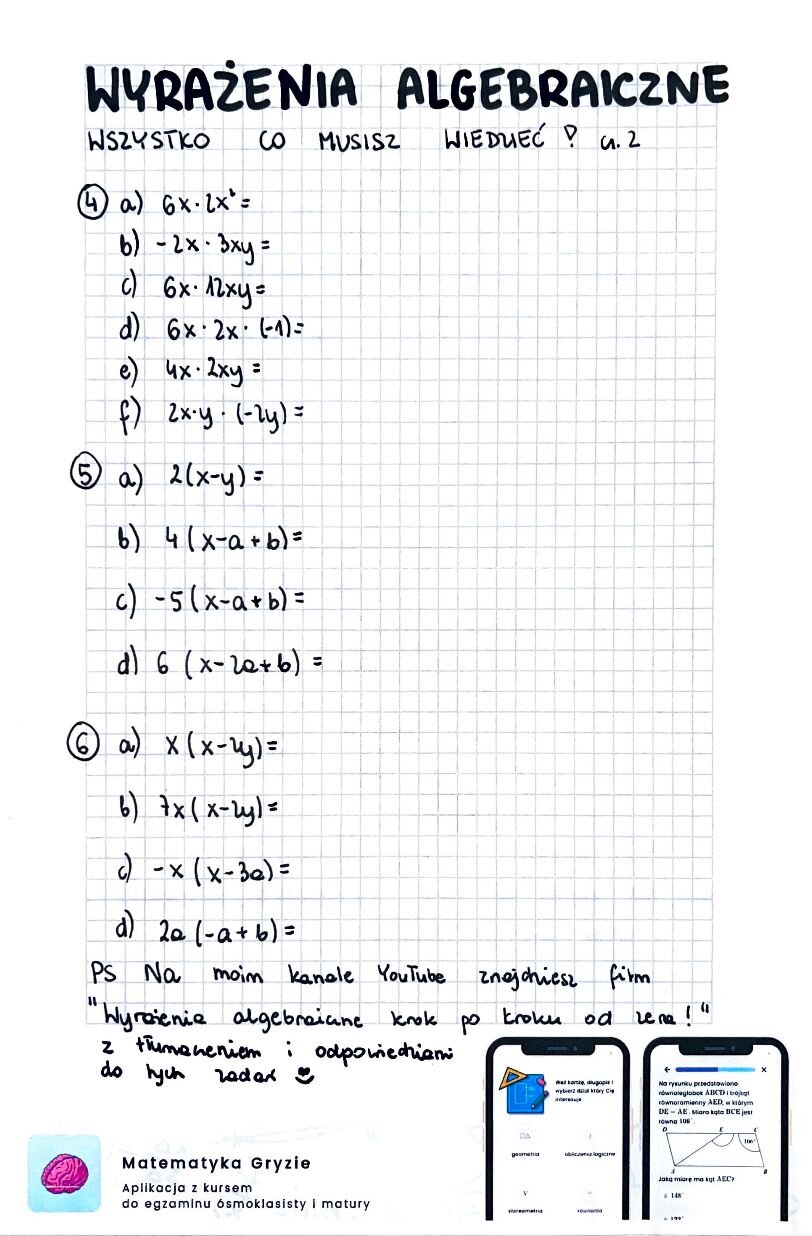 WYRAŻENIA ALGEBRAICZNE
WSZYSTKO CO MUSISZ WIEDZIEĆ? cz. 2
4 a) 6x·2x²=
b) -2x·3xy=
c) 6x·12xy=
d) 6x·2x·(-1)=
e) 4x·2xy=
f) 2x·y·(-2y)=
5 a) 2(x-y)=
b) 4(x-a+b)=
c) -5(x-a+b)=
d) 6(x-2a+b)=
6 a) x(x-2y)=
b) 7x(x-2y)=
c) -x(x-3a)=
d) 2a(-a+b)=
PS Na moim kanale YouTube znajdziesz film
"Wyrażenia algebraiczne krok po kroku od zera!"
z tłumaczeniem i odpowiedziami
do tych zadań
Weź kartkę, długopis i
wybierz dział który Cię
interesuje
geometria
obliczenia logiczne
stereometria
równania
Na rysunku przedstawiono
równoległobok ABCD i trójkąt
równoramienny AED, w którym
DE = AE. Miara kąta BCE jest
równa 106°.
D E C
106°
A B
Jaką miarę ma kąt AEC?
A 148°
Matematyka Gryzie
Aplikacja z kursem
do egzaminu ósmoklasisty i matury